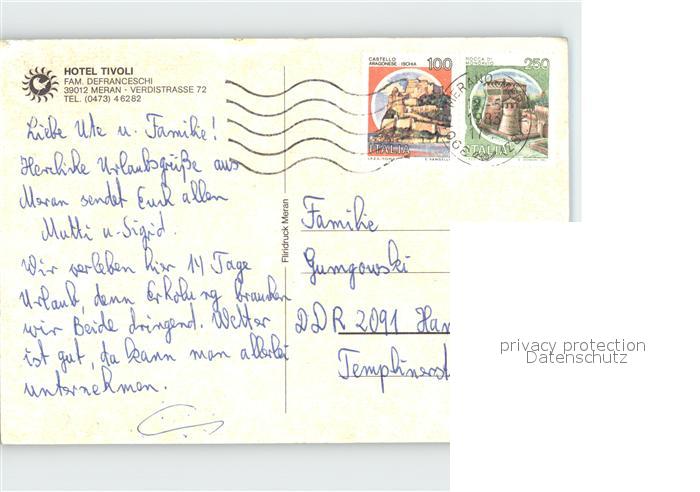 HOTEL TIVOLI
FAM. DEFRANCESCHI
39012 MERAN - VERDISTRASSE 72
TEL. (0473) 46282
Liebe Ute u. Familie!
Herzliche Urlaubsgrüße aus
Meran sendet Euch allen
Mutti u. Sigrid.
Wir verleben hier 14 Tage
Urlaub, denn Erholung brauchen
wir Beide dringend. Wetter
ist gut, da kann man allerlei
unternehmen.
Fliridruck Meran
CASTELLO
ARAGONESE ISCHIA
100
ITALIA
ROCCA DI
250
ITALIA
MERANO
Familie
Gumgowski
DDR 2091 Ha
Templinerst
privacy protection
Datenschutz